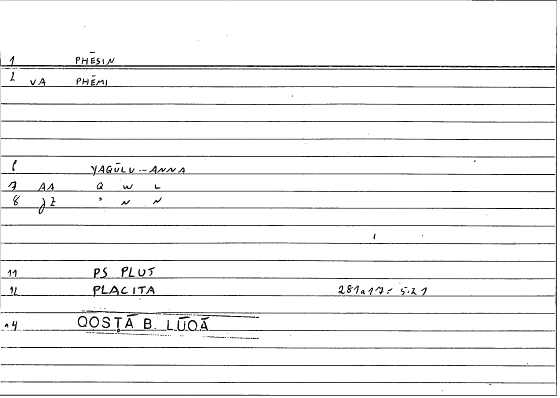 1 PHĒSIN
2 VA PHĒMI
6 YAQŪLU -- ANNA
7 AA Q W L
8 JZ " N N
11 PS PLUT
12 PLACITA 281a17 = 5.21
14 QOSṬĀ B. LŪQĀ